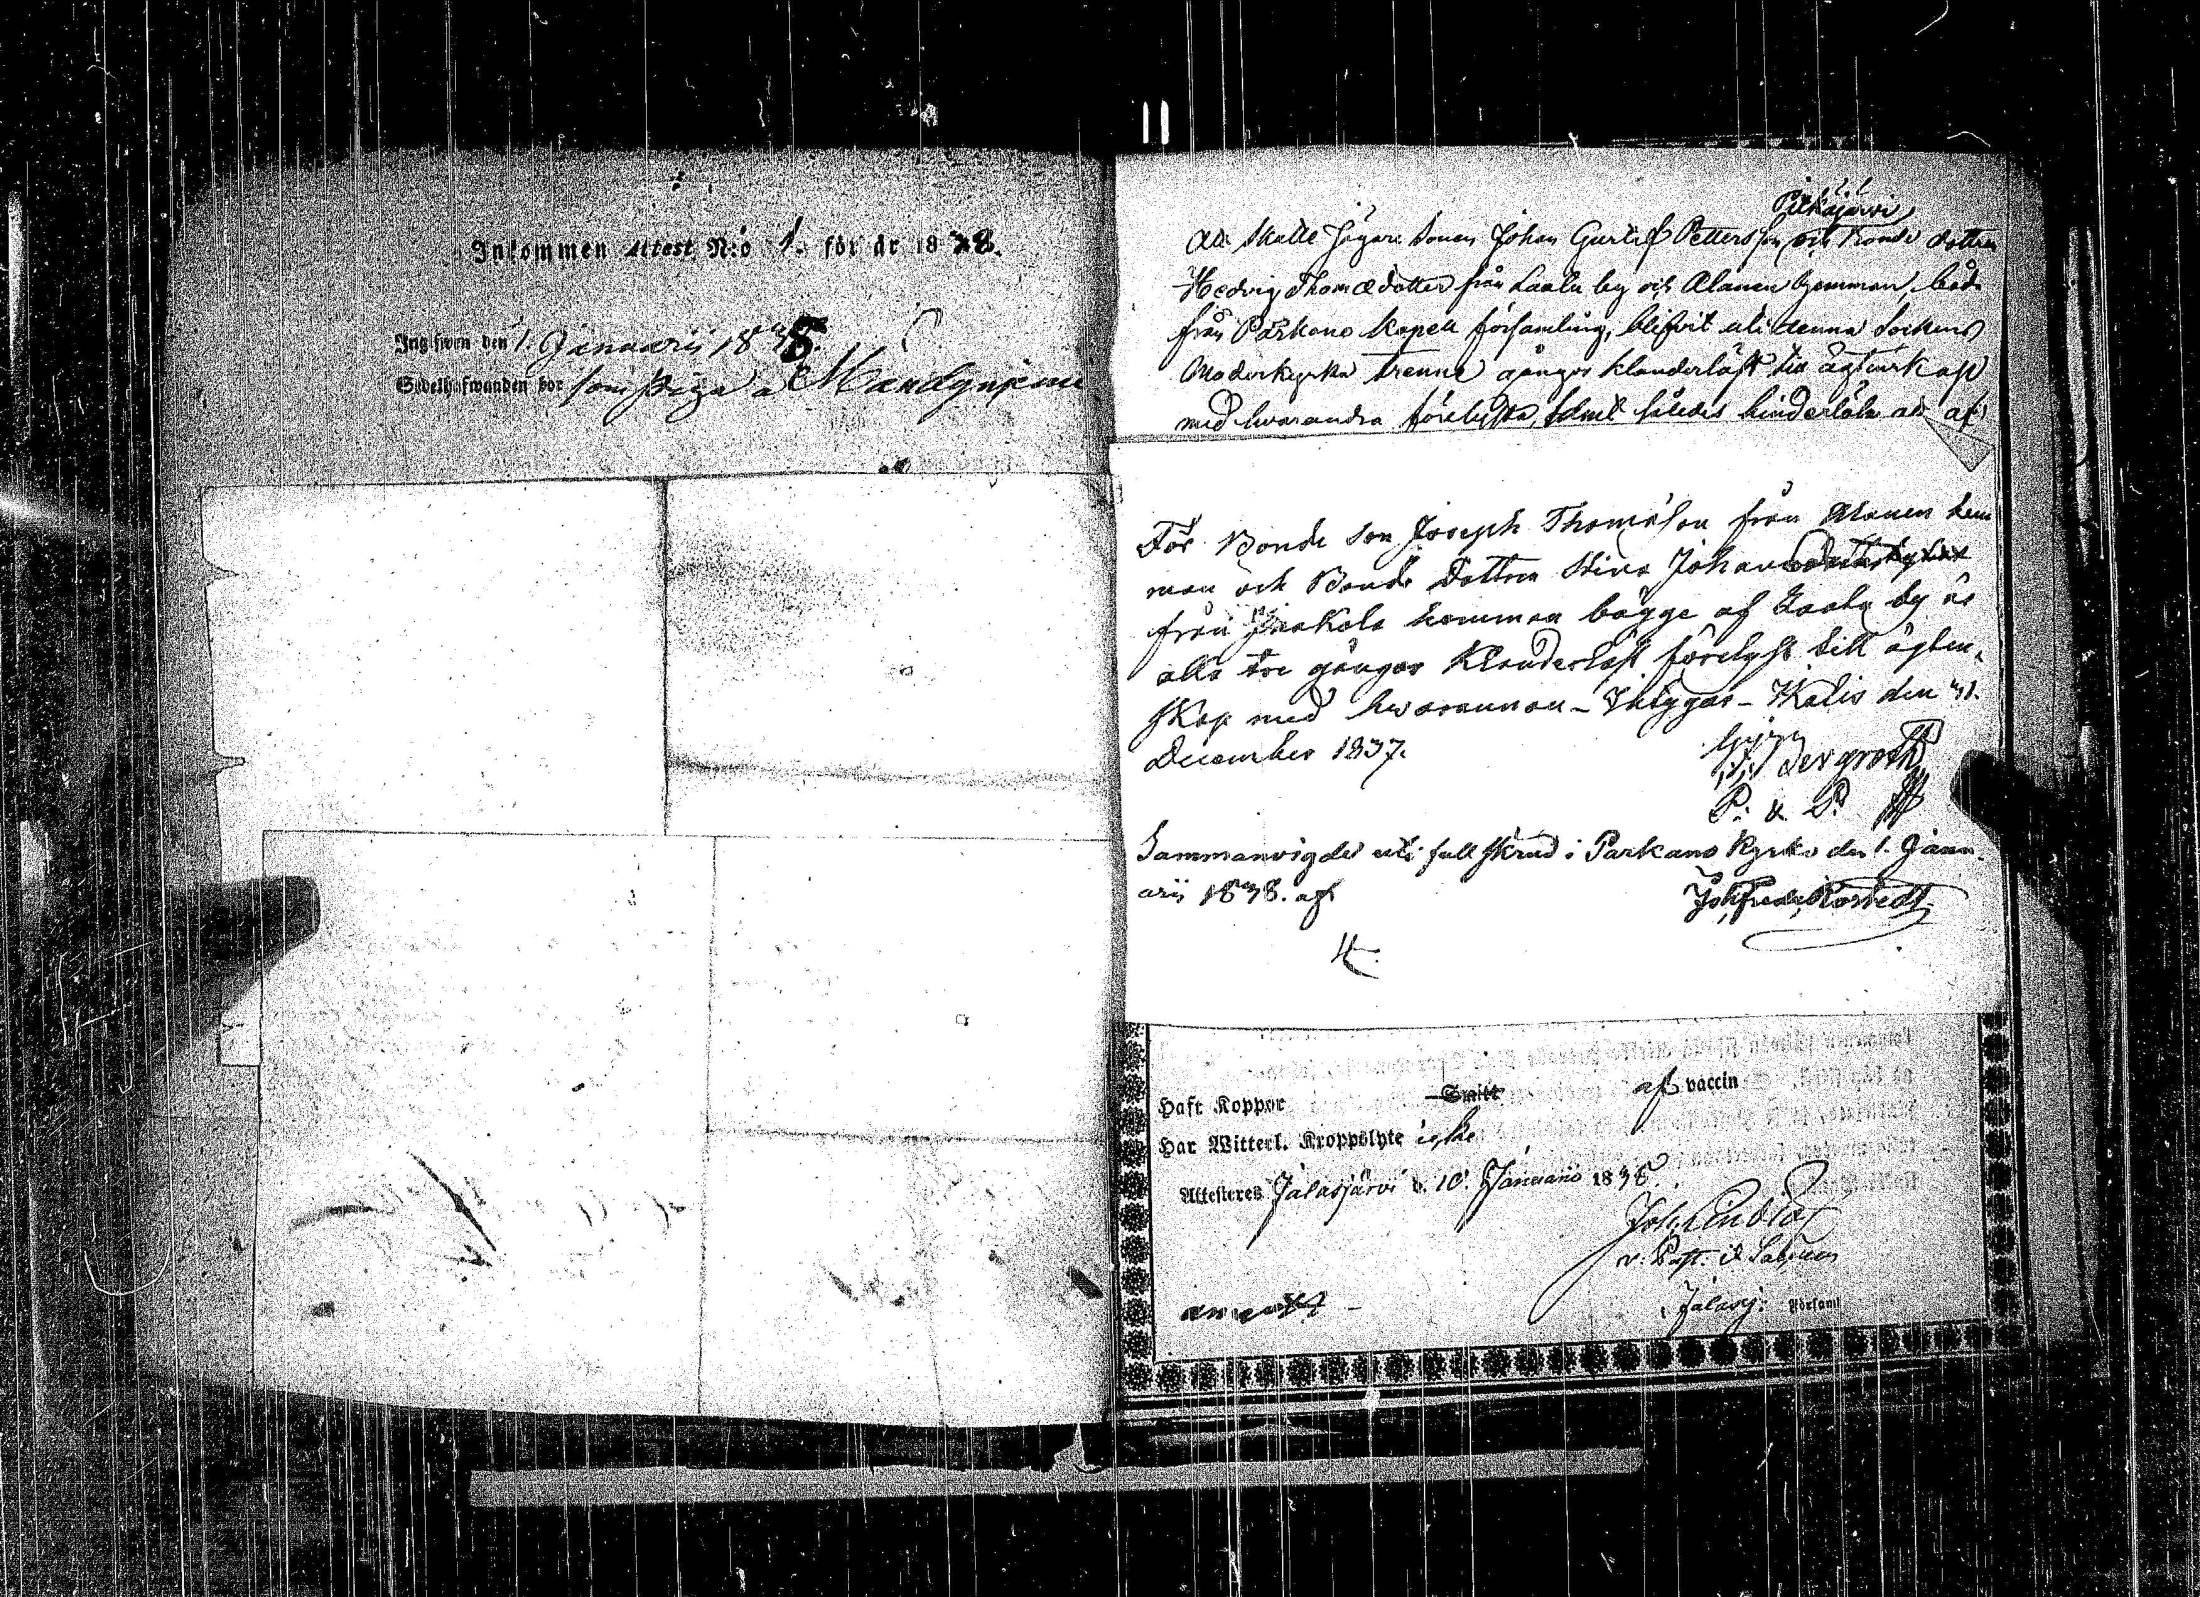 Inkommen Attest N:o 1. för år 1838.
Ingifwen den 1. Januarii 1838.
Sedelhafwanden bor som Piga a
Pitkäjärvi
Att Skatte Jägare Sonen Johan Gustaf Pettersson och Bonde dottren
Hedvig Thomædotter från Laala by och Alanen hemman, både
från Parkano Kapell församling, blifvit uti denna Sockens
Moderkyrka trenne gånger klanderlöst till ägtenskap
med hvarandra förelysta, samt således hinderlösa att af
För Bonde Son Joseph Thomasson från Alanen hem
man och Bonde Dottren Stina Johansdotter
från Jaakola hemman bägge af Laala by är
alla tre gångor Klanderlöst förelyst till ägten,
skap med hvarannan – Intygar – Ikalis den 31.
December 1837.
P. & P.
Sammanvigde uti full skrud i Parkano Kyrka den 1. Janu-
arii 1838. af
Joh. Fredr. Rostedt.
Haft Koppor Smitt af vaccin
Har Witterl. Kroppslyte icke
Attesteres Jalasjärvi d. 10. Januarii 1838.
v. Past. & Sac.
Jalasj. Församl